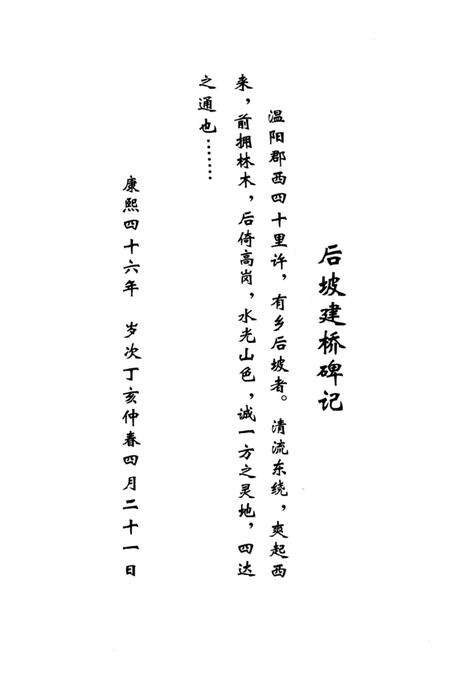 后坡建桥碑记
温阳郡西四十里许，有乡后坡者。清流东绕，爽起西
来，前拥林木，后倚高岗，水光山色，诚一方之灵地，四达
之通也……
康熙四十六年 岁次丁亥仲春四月二十一日